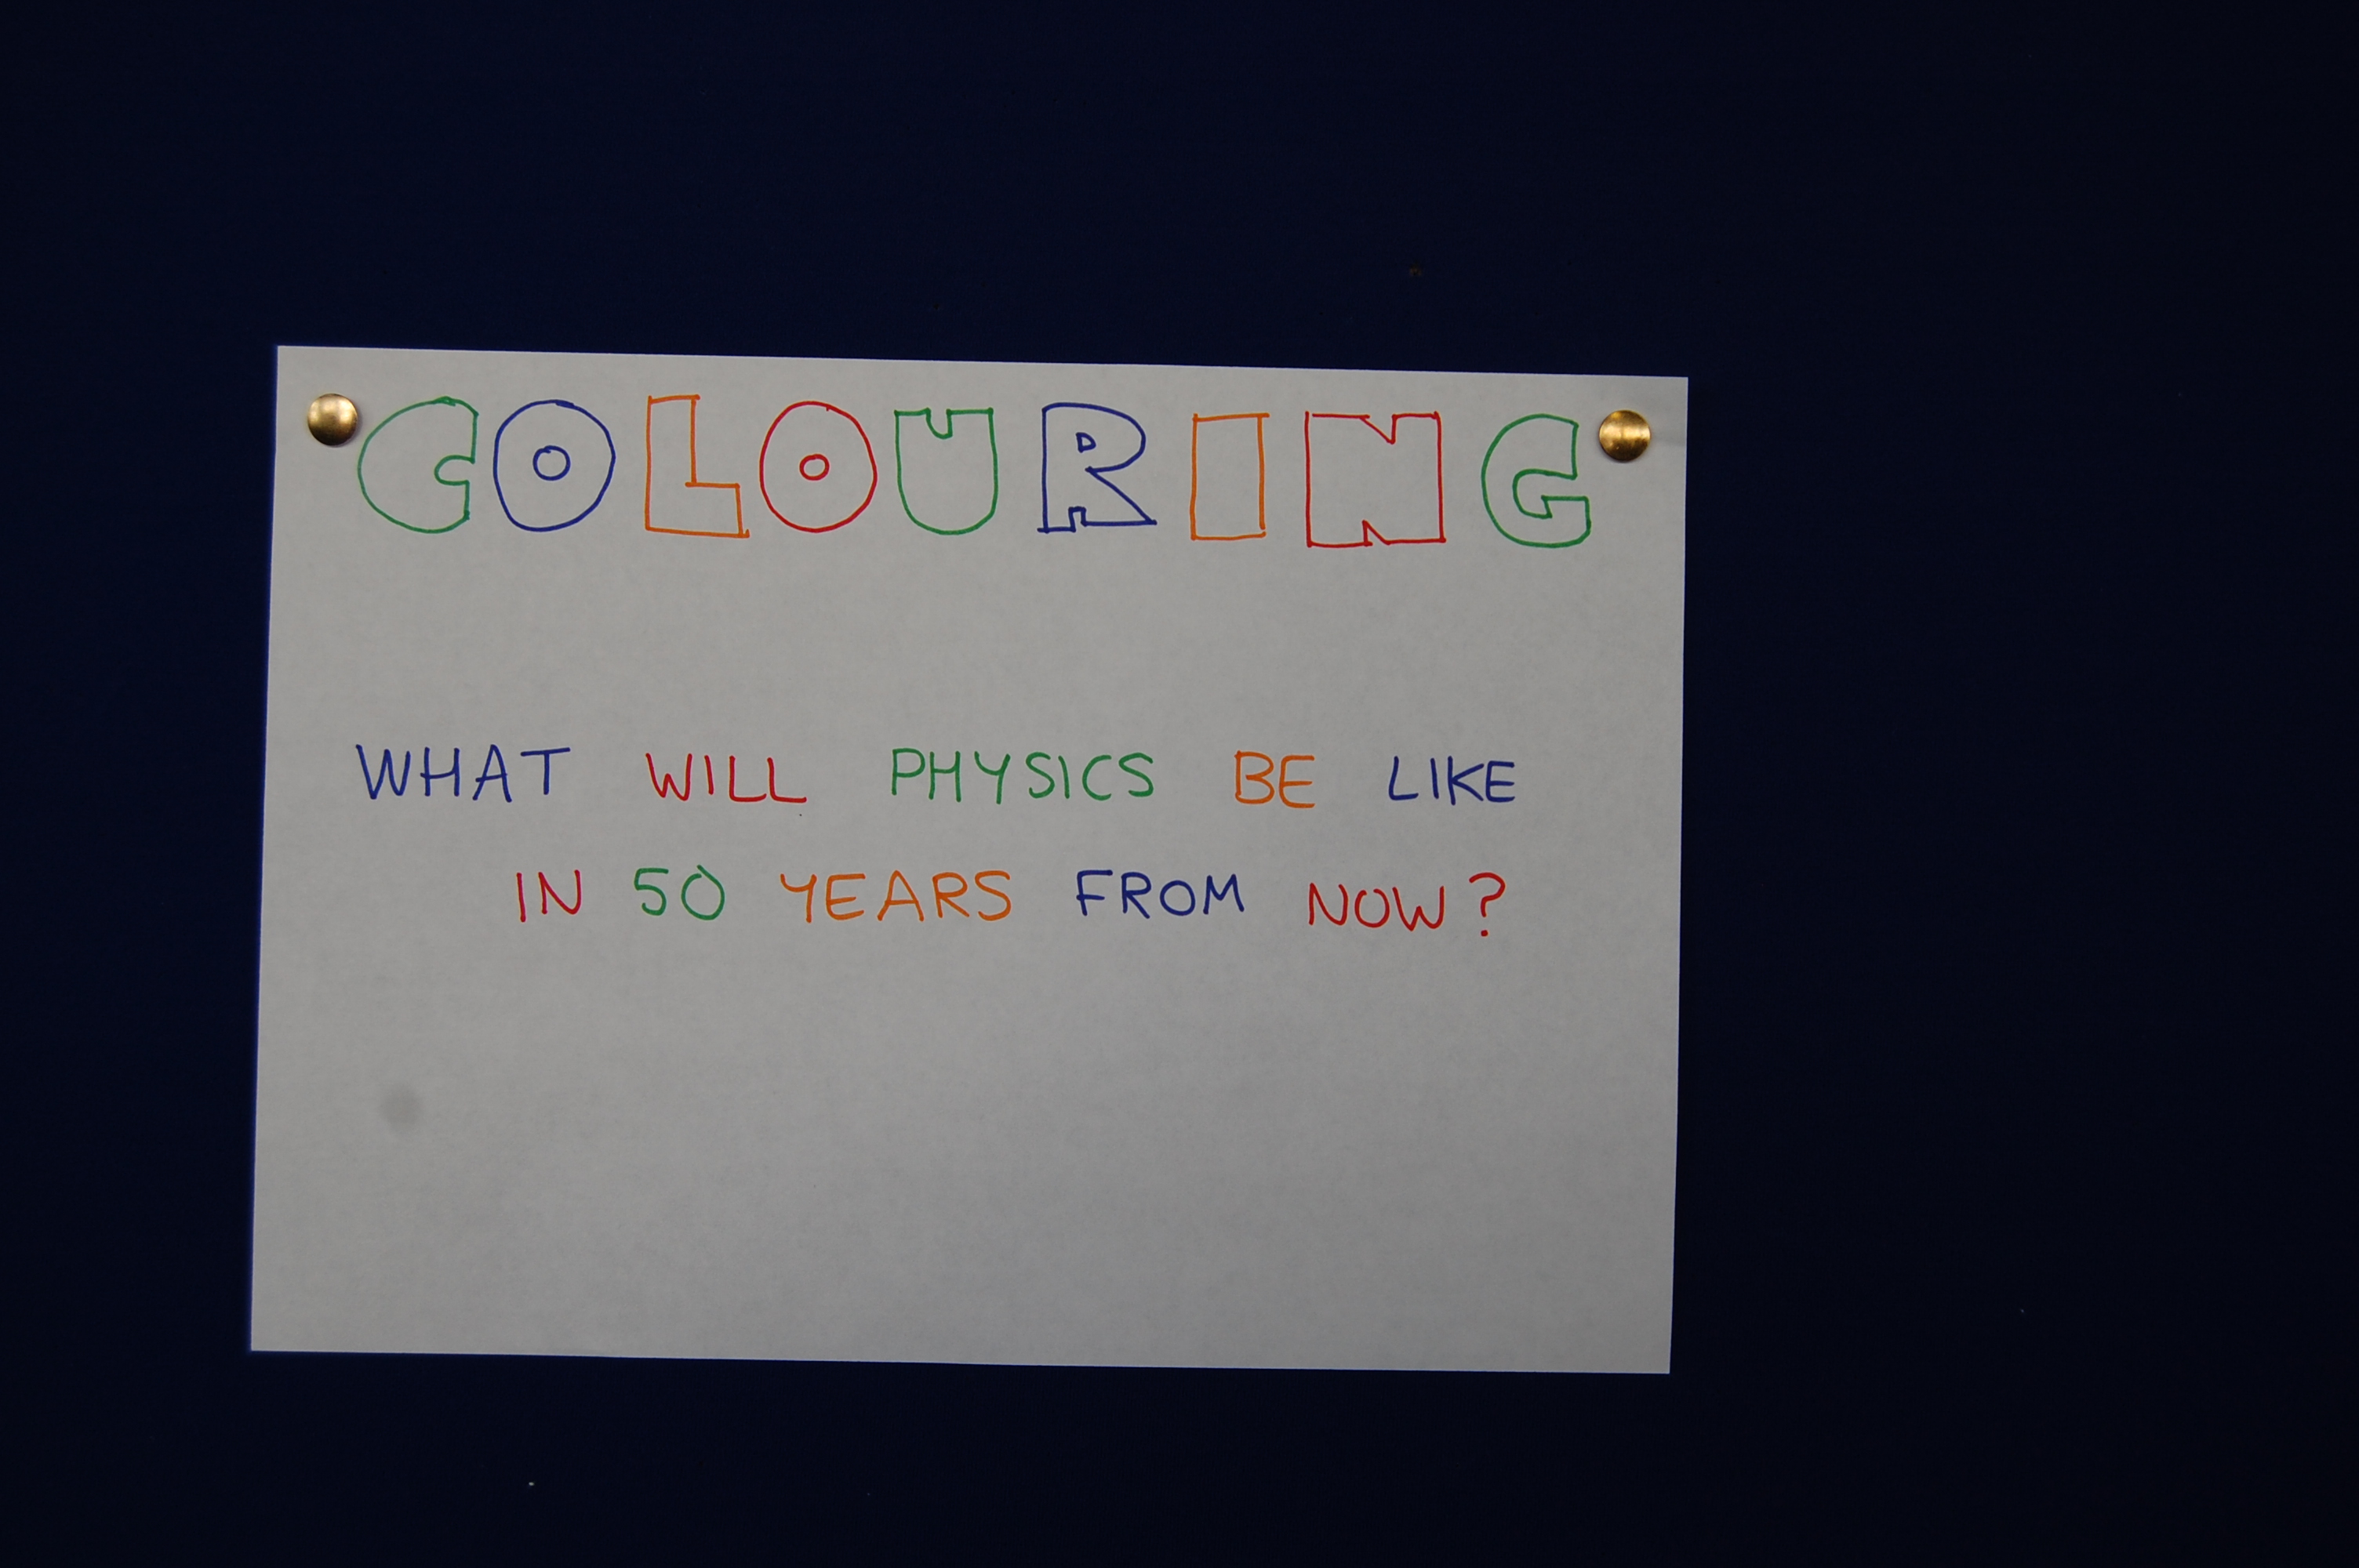 COLOURING
WHAT WILL PHYSICS BE LIKE
IN 50 YEARS FROM NOW?